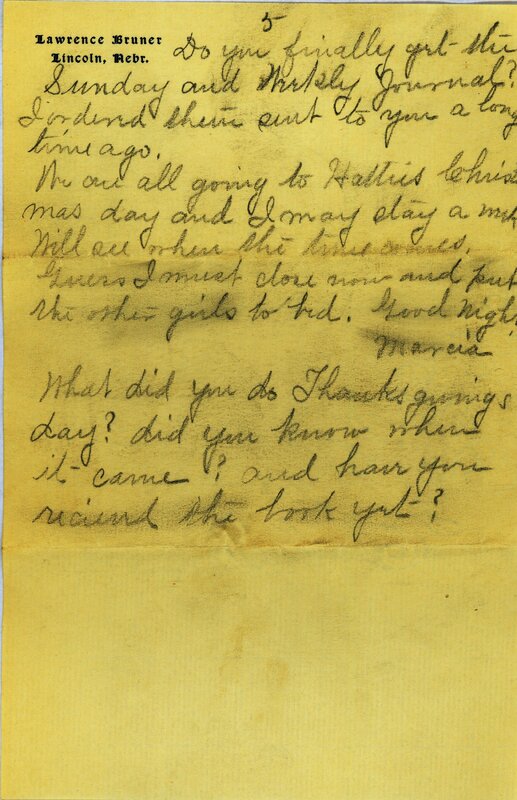 5
Lawrence Bruner
Lincoln, Nebr.
Do you finally get the
Sunday and Weekly Journal?
I ordered them sent to you a long
time ago.
We are all going to Hatties Christ
mas day and I may stay a week
Will see when the time comes.
Guess I must close now and put
the other girls to bed. Good Night
Marcia
What did you do Thanksgivings
day? did you know when
it came? and have you
reciend the book yet?